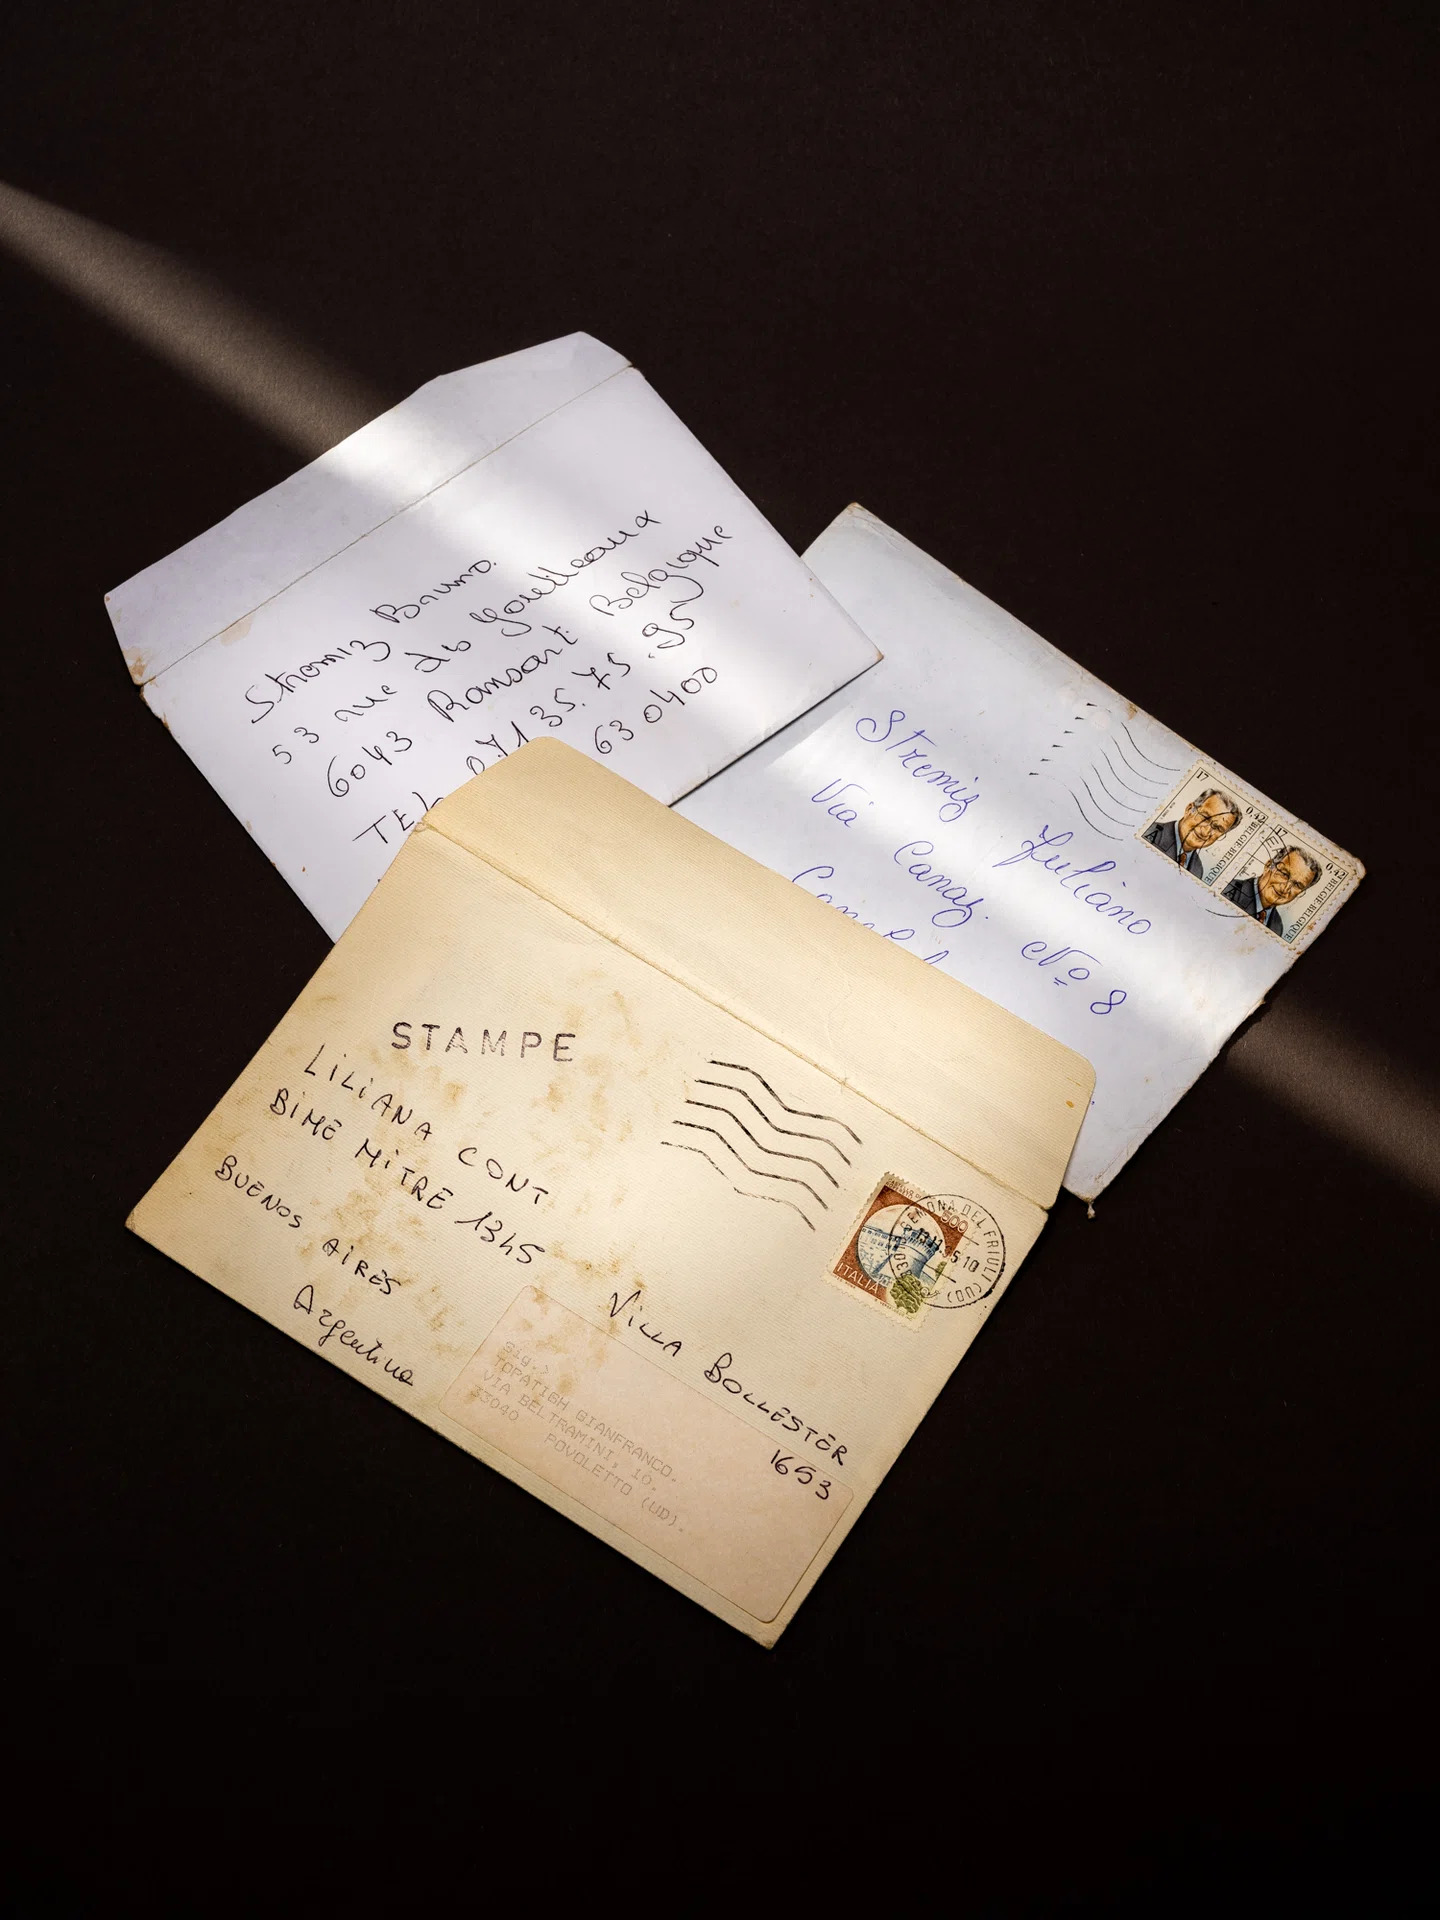 Stremiz Bruno.
53 rue de
6043 Ransart Belgique
TEL 071 35.75.95
630400
Stremiz Juliano
Via Canaz. Nº 8
17
0,42
BELGIE-BELGIQUE
17
0,42
BELGIE-BELGIQUE
STAMPE
LILIANA CONT
BIMÉ MITRE 1345
BUENOS AIRES
Argentina
VILLA BOLLESTER
1653
500
ITALIA
GEMONA DEL FRIULI (UD)
Sig.
TOPATIGH GIANFRANCO.
VIA BELTRAMINI, 10.
33040 POVOLETTO (UD).